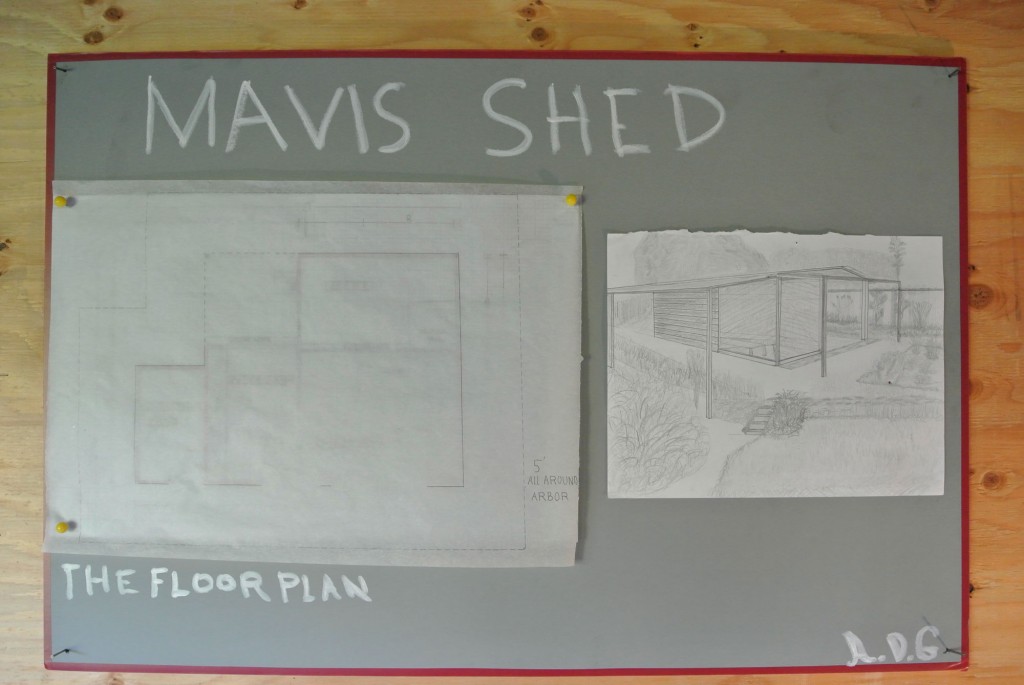 MAVIS SHED
5'
All AROUND
ARBOR
THE FLOOR PLAN
A.D.G